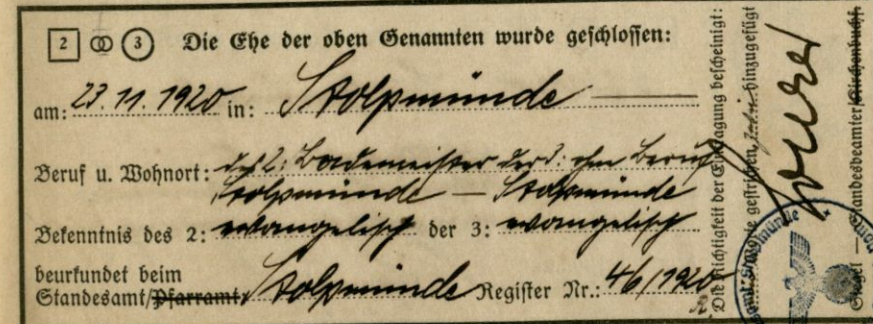 2 ⚭ 3 Die Ehe der oben Genannten wurde geschlossen:
am: 23.11.1920 in: Stolpmünde
Beruf u. Wohnort: des 2: Bademeister der 3: ohne Beruf
Stolpmünde — Stolpmünde
Bekenntnis des 2: evangelisch der 3: evangelisch
beurkundet beim
Standesamt/Pfarramt: Stolpmünde Register Nr.: 46/1920
Die Richtigkeit der Eintragung bescheinigt:
gestrichen, hinzugefügt
Siegel — Standesbeamter/Kirchenbuchf.
Stolpmünde